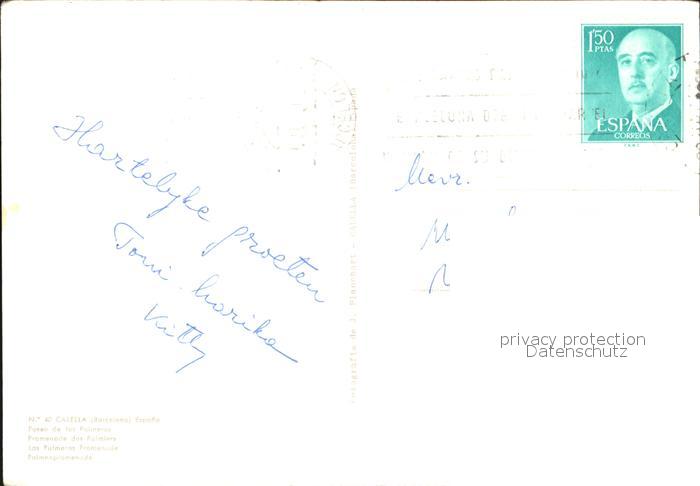 Hartelyke groeten
Toni Marika
Kitty
Mevr.
M
1'50
PTAS
ESPAÑA
CORREOS
Fotografía de J. Planchart - CALELLA (Barcelona)
privacy protection
Datenschutz
N.º 40 CALELLA (Barcelona) España
Paseo de las Palmeras
Promenade des Palmiers
Las Palmeras Promenade
Palmenpromenade